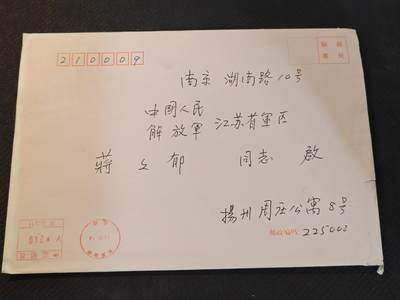 210009
南京 湖南路10号
中國人民
解放軍 江苏省軍区
蔣文郁 同志 啟
揚州 周庄公寓 8号
邮政编码 225002